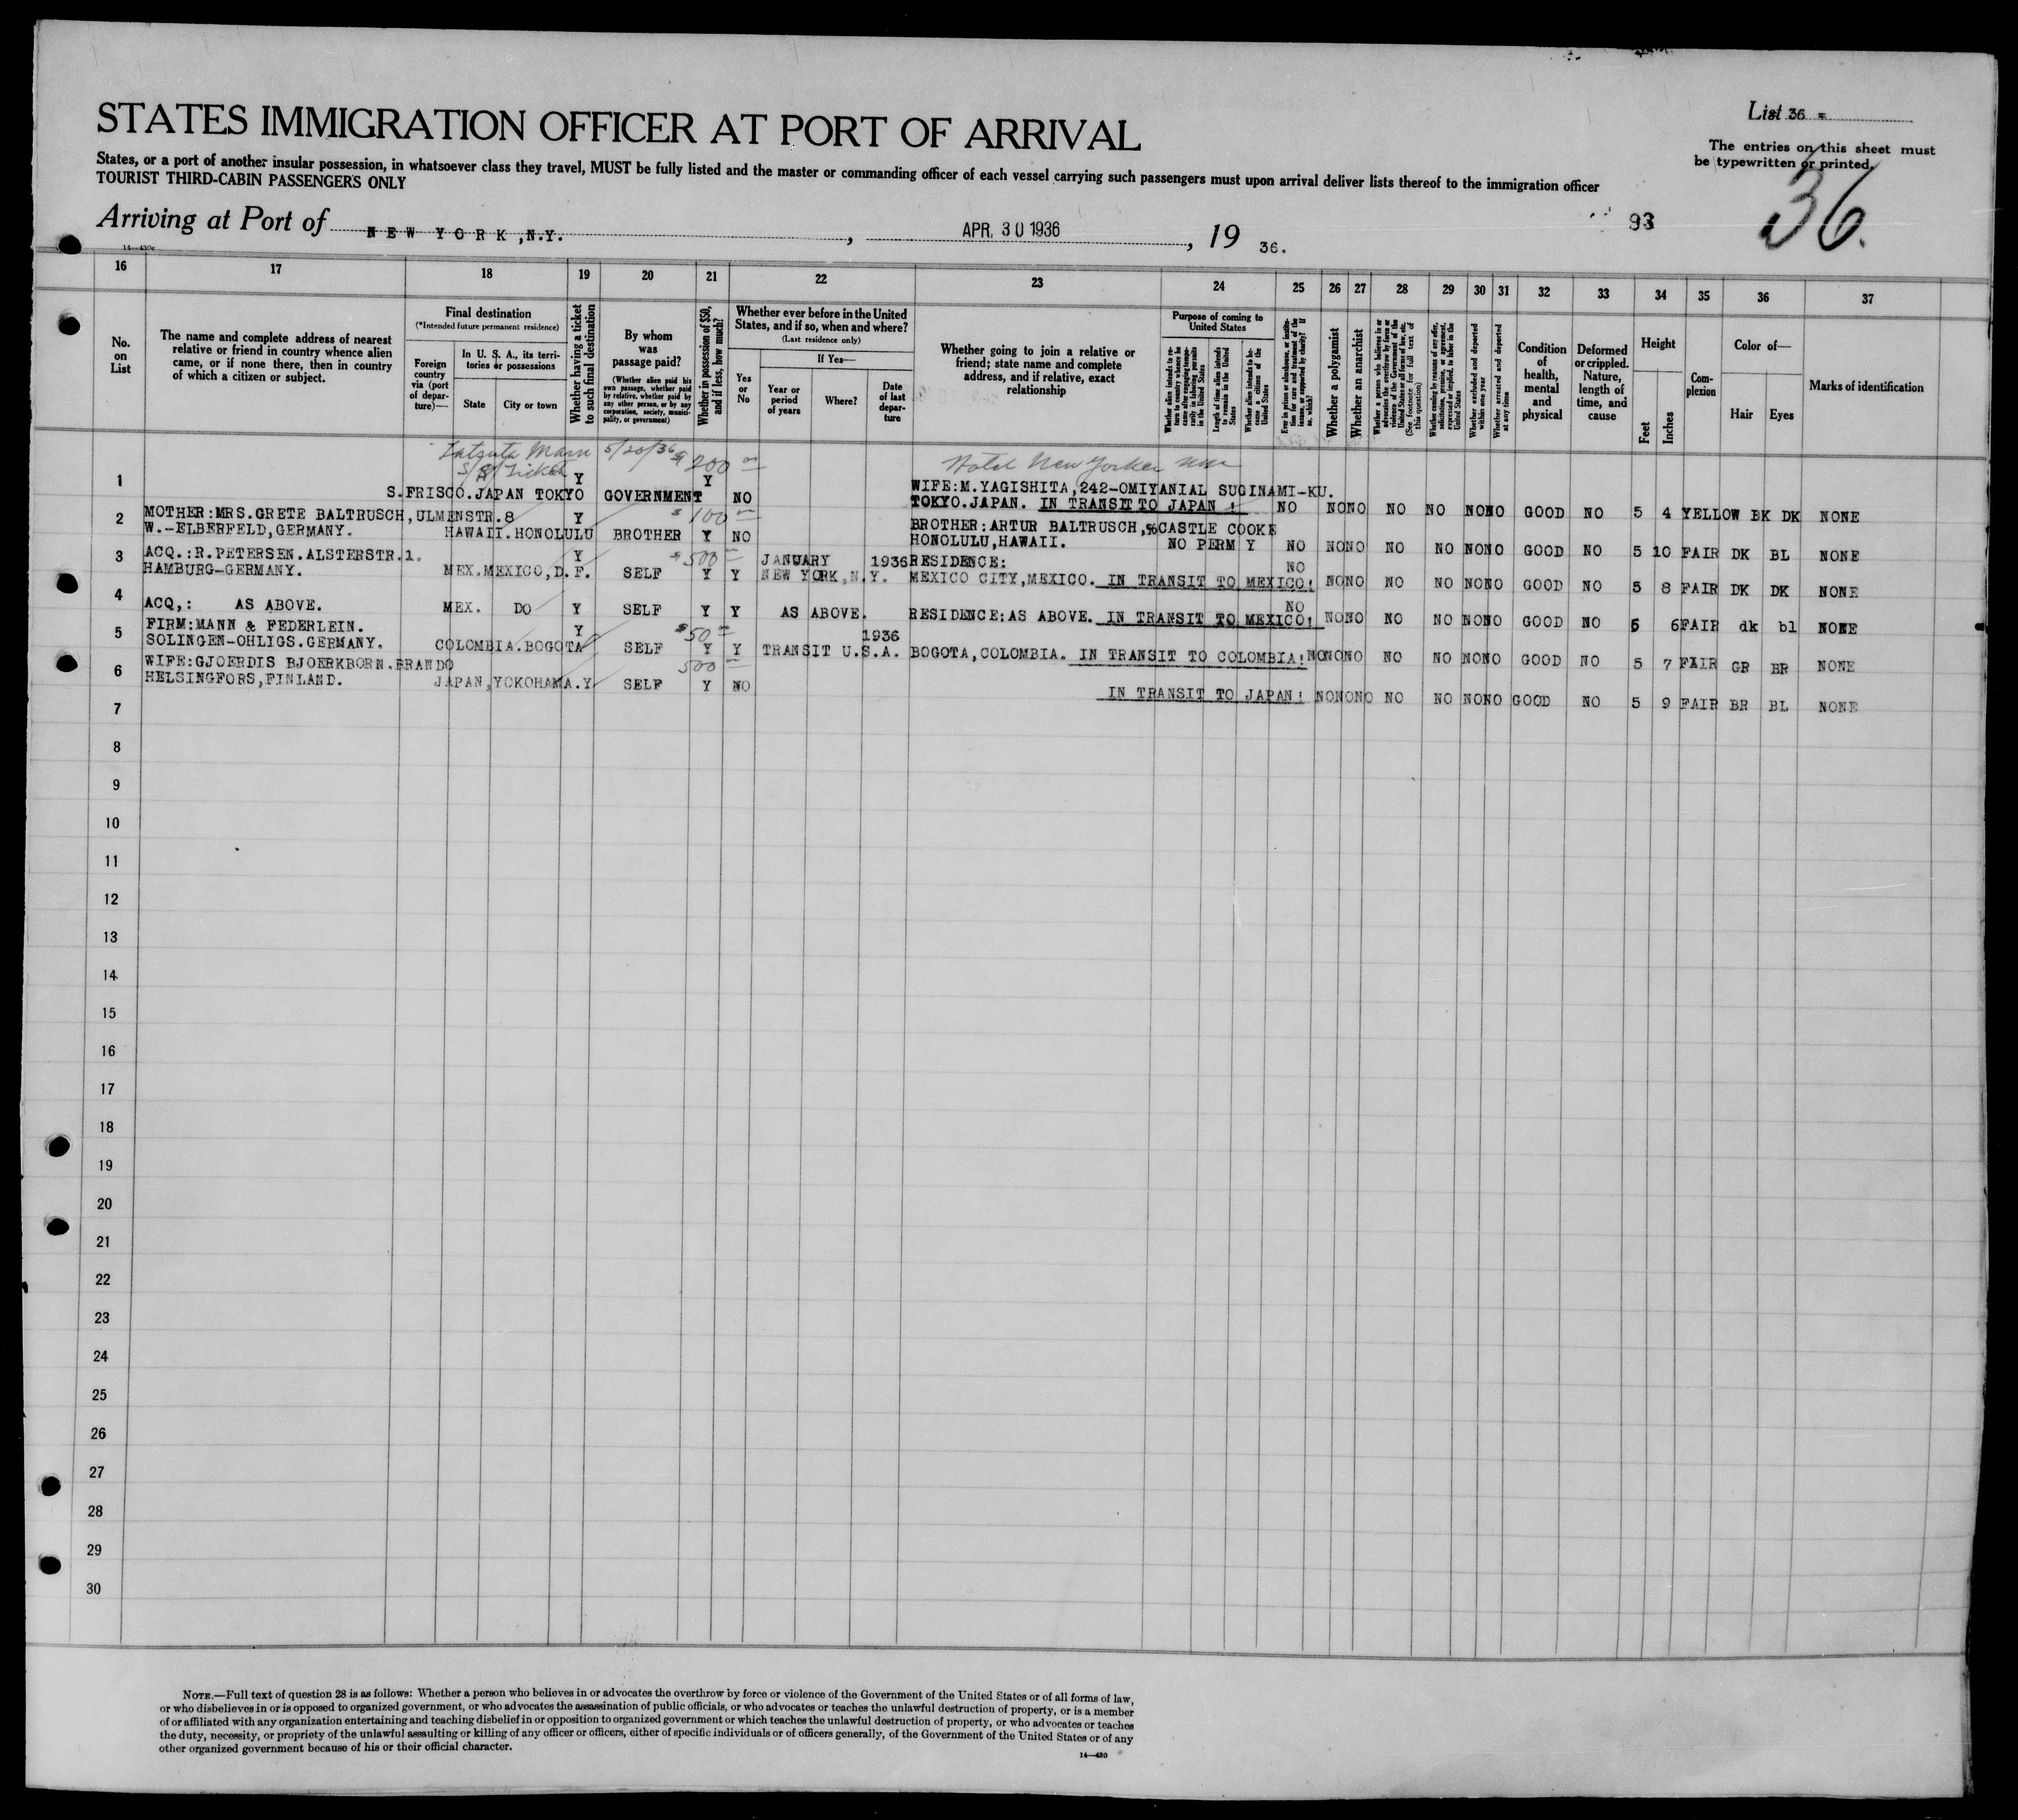 List 36 =
STATES IMMIGRATION OFFICER AT PORT OF ARRIVAL
The entries on this sheet must
be typewritten or printed.
States, or a port of another insular possession, in whatsoever class they travel, MUST be fully listed and the master or commanding officer of each vessel carrying such passengers must upon arrival deliver lists thereof to the immigration officer
TOURIST THIRD-CABIN PASSENGERS ONLY
36.
93
Arriving at Port of NEW YORK,N.Y. , APR. 30 1936 , 19 36.
16 17 18 19 20 21 22 23 24 25 26 27 28 29 30 31 32 33 34 35 36 37
No. on List
The name and complete address of nearest
relative or friend in country whence alien
came, or if none there, then in country
of which a citizen or subject.
Final destination
(*Intended future permanent residence)
Foreign country via (port of departure)—
In U. S. A., its territories or possessions
State
City or town
Whether having a ticket to such final destination
By whom was passage paid?
(Whether alien paid his own passage, whether paid by relative, whether paid by any other person, or by any corporation, society, municipality, or government)
Whether in possession of $50, and if less, how much?
Whether ever before in the United
States, and if so, when and where?
(Last residence only)
If Yes—
Yes or No
Year or period of years
Where?
Date of last departure
Whether going to join a relative or
friend; state name and complete
address, and if relative, exact
relationship
Purpose of coming to
United States
Length of time alien intends to remain in the United States
Whether alien intends to become a citizen of the United States
Whether a polygamist
Whether an anarchist
(See footnote for full text of this question)
Whether arrested and deported at any time
Condition of health, mental and physical
Deformed or crippled. Nature, length of time, and cause
Height
Feet
Inches
Complexion
Color of—
Hair
Eyes
Marks of identification
Tatsuta Maru 5/20/36 $ 200 Hotel New Yorker
S/S Ticket
1 S.FRISCO.JAPAN TOKYO Y GOVERNMENT Y NO WIFE:M.YAGISHITA,242-OMIYANIAL SUGINAMI-KU.
TOKYO.JAPAN. IN TRANSIT TO JAPAN ! NO NO NO NO NO NO NO GOOD NO 5 4 YELLOW BK DK NONE
2 MOTHER:MRS.GRETE BALTRUSCH,ULMENSTR.8 Y $ 100 BROTHER:ARTUR BALTRUSCH,%CASTLE COOKE
W.-ELBERFELD,GERMANY. HAWAII.HONOLULU BROTHER Y NO HONOLULU,HAWAII. NO PERM Y NO NO NO NO NO NO NO GOOD NO 5 10 FAIR DK BL NONE
3 ACQ.:R.PETERSEN.ALSTERSTR.1. Y $ 500 JANUARY 1936 RESIDENCE: NO
HAMBURG-GERMANY. MEX.MEXICO,D.F. SELF Y Y NEW YORK,N.Y. MEXICO CITY,MEXICO. IN TRANSIT TO MEXICO! NO NO NO NO NO NO GOOD NO 5 8 FAIR DK DK NONE
4 ACQ,: AS ABOVE. MEX. DO Y SELF Y Y AS ABOVE. RESIDENCE:AS ABOVE. IN TRANSIT TO MEXICO! NO NO NO NO NO NO NO GOOD NO 5 6 FAIR dk bl NONE
5 FIRM:MANN & FEDERLEIN. Y $50 1936
SOLINGEN-OHLIGS.GERMANY. COLOMBIA.BOGOTA SELF Y Y TRANSIT U.S.A. BOGOTA,COLOMBIA. IN TRANSIT TO COLOMBIA! NO NO NO NO NO NO NO GOOD NO 5 7 FAIR GR BR NONE
6 WIFE:GJOERDIS BJOERKBORN.BRANDO 500
HELSINGFORS,FINLAND. JAPAN,YOKOHAMA.Y SELF Y NO IN TRANSIT TO JAPAN! NO NO NO NO NO NO NO GOOD NO 5 9 FAIR BR BL NONE
7
8
9
10
11
12
13
14
15
16
17
18
19
20
21
22
23
24
25
26
27
28
29
30
NOTE.—Full text of question 28 is as follows: Whether a person who believes in or advocates the overthrow by force or violence of the Government of the United States or of all forms of law,
or who disbelieves in or is opposed to organized government, or who advocates the assassination of public officials, or who advocates or teaches the unlawful destruction of property, or is a member
of or affiliated with any organization entertaining and teaching disbelief in or opposition to organized government or which teaches the unlawful destruction of property, or who advocates or teaches
the duty, necessity, or propriety of the unlawful assaulting or killing of any officer or officers, either of specific individuals or of officers generally, of the Government of the United States or of any
other organized government because of his or their official character.
14—430